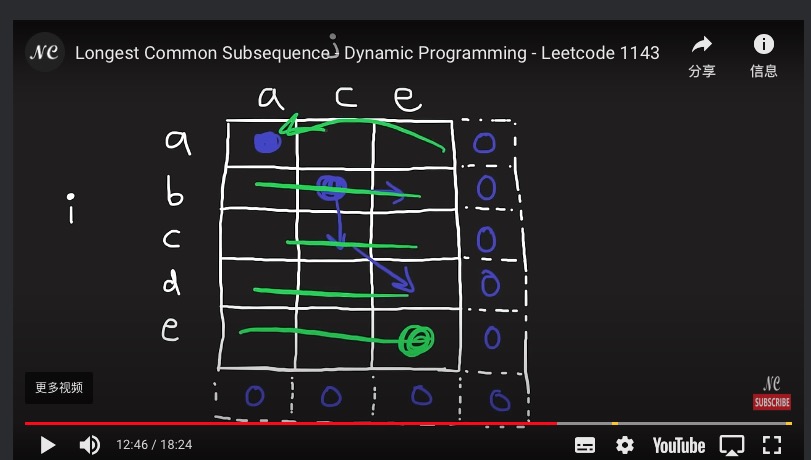 NC Longest Common Subsequence - Dynamic Programming - Leetcode 1143
分享
信息
j
a c e
a 0
b 0
i
c 0
d 0
e 0
0 0 0 0
更多视频
NC
SUBSCRIBE
12:46 / 18:24
YouTube